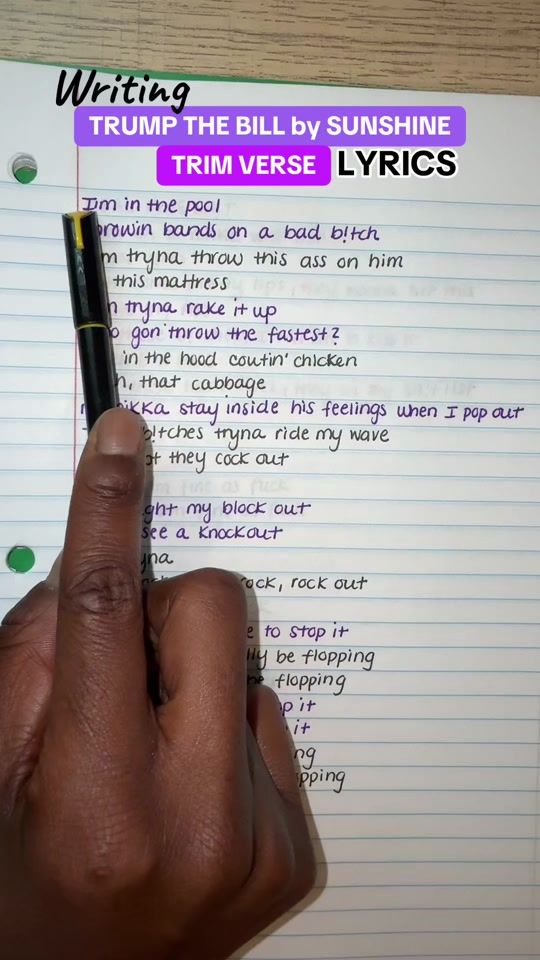 Writing
TRUMP THE BILL by SUNSHINE
TRIM VERSE LYRICS
Im in the pool
rowin bands on a bad b!tch
m tryna throw this ass on him
this mattress
tryna rake it up
gon' throw the fastest?
in the hood coutin' chicken
, that cabbage
ikka stay inside his feelings when I pop out
b!tches tryna ride my wave
they cock out
ght my block out
see a knockout
yna
rock, rock out
e to stop it
lly be flopping
flopping
p it
it
ng
pping